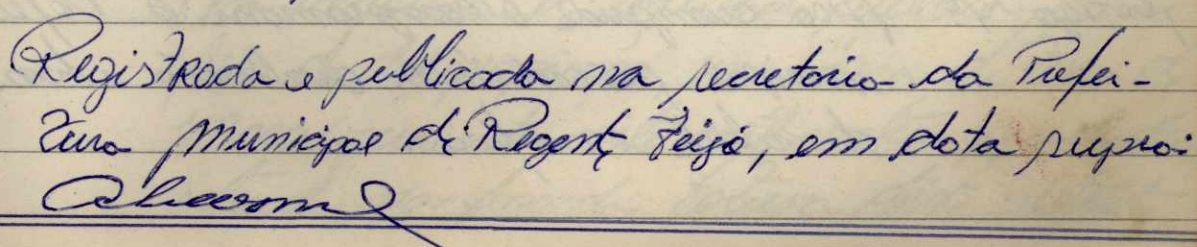 Registrada e publicada na secretaria da Prefei-
tura Municipal de Regente Feijó, em data supra: